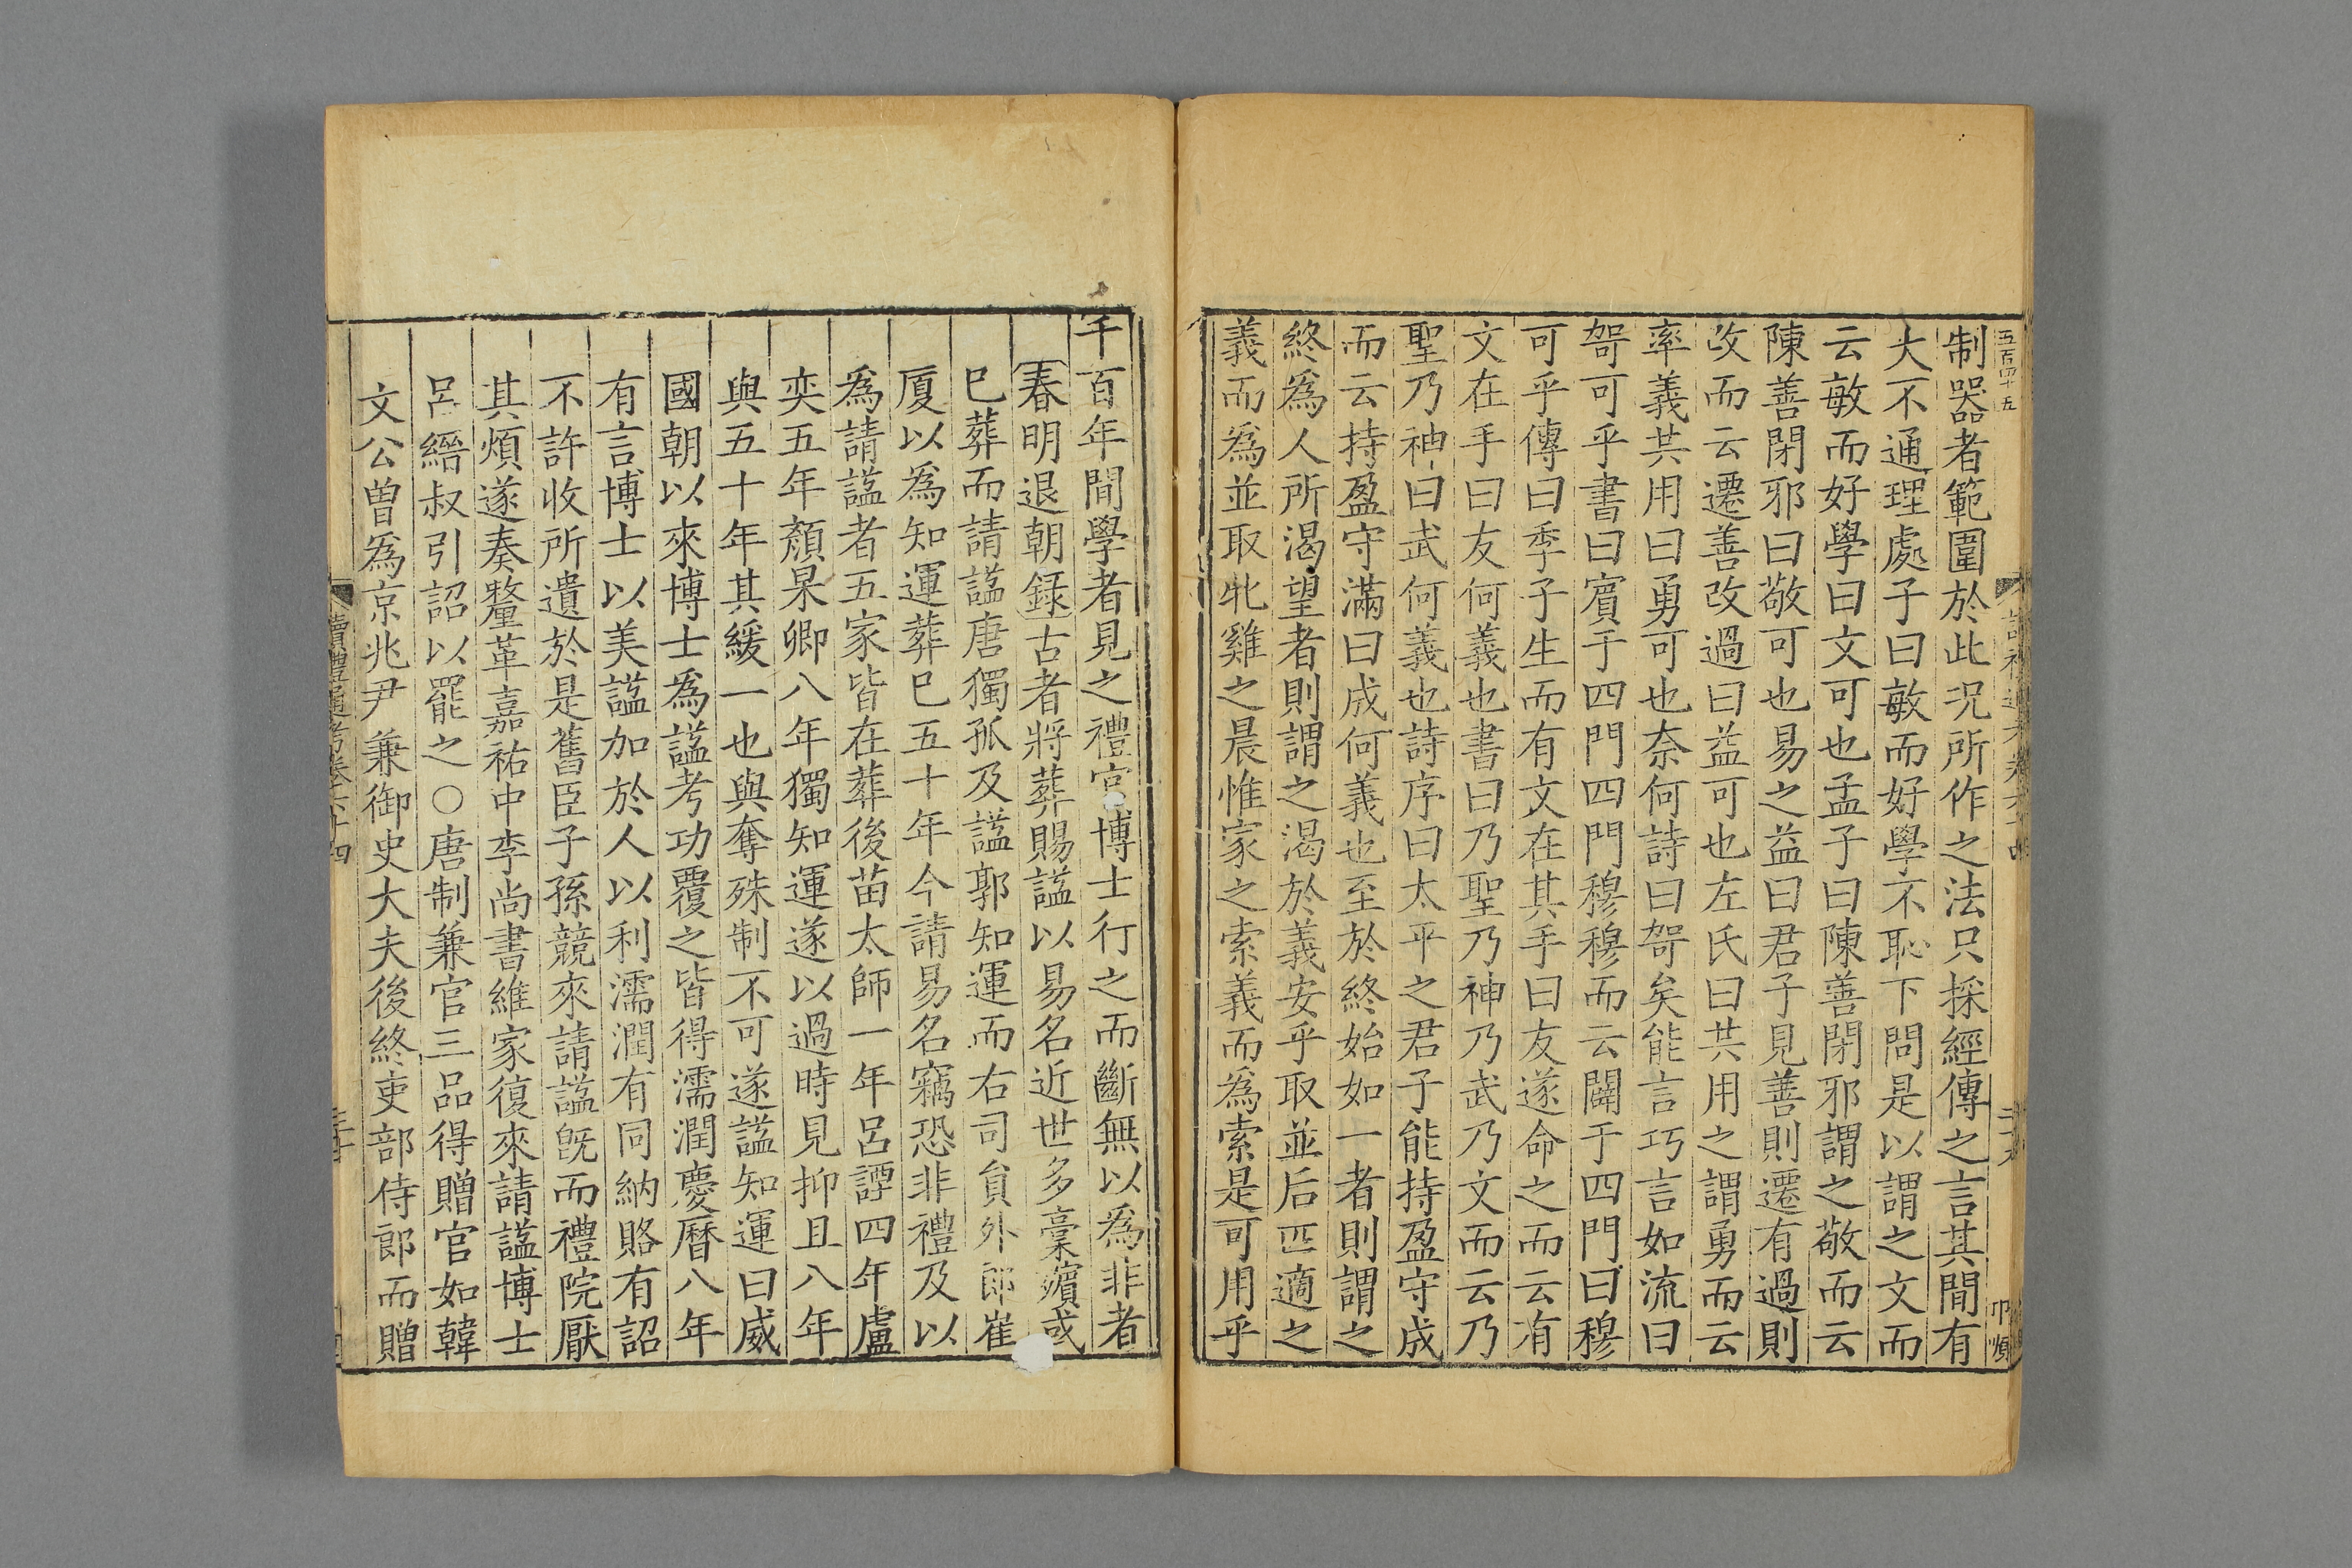 五百四十五
制器者範圍於此況所作之法只採經傳之言其間有
大不通理處子曰敏而好學不恥下問是以謂之文而
云敏而好學曰文可也孟子曰陳善閉邪謂之敬而云
陳善閉邪曰敬可也易之益曰君子見善則遷有過則
改而云遷善改過曰益可也左氏曰共用之謂勇而云
率義共用曰勇可也奈何詩曰哿矣能言巧言如流曰
哿可乎書曰賓于四門四門穆穆而云闢于四門曰穆
可乎傳曰季子生而有文在其手曰友遂命之而云有
文在手曰友何義也書曰乃聖乃神乃武乃文而云乃
聖乃神曰武何義也詩序曰太平之君子能持盈守成
而云持盈守滿曰成何義也至於終始如一者則謂之
終為人所渴望者則謂之渴於義安乎取並后匹適之
義而為並取牝雞之晨惟家之索義而為索是可用乎
千百年間學者見之禮官博士行之而斷無以為非者
春明退朝録古者將葬賜諡以易名近世多槀殯或
已葬而請諡唐獨孤及諡郭知運而右司貟外郎崔
厦以為知運葬已五十年今請易名竊恐非禮及以
為請諡者五家皆在葬後苗太師一年呂諲四年盧
奕五年顏杲卿八年獨知運遂以過時見抑且八年
與五十年其緩一也與奪殊制不可遂諡知運曰威
國朝以來博士為諡考功覆之皆得濡潤慶曆八年
有言博士以美諡加於人以利濡潤有同納賂有詔
不許收所遺於是舊臣子孫競來請諡旣而禮院厭
其煩遂奏釐革嘉祐中李尚書維家復來請諡博士
呂縉叔引詔以罷之○唐制兼官三品得贈官如韓
文公曾為京兆尹兼御史大夫後終吏部侍郎而贈
讀禮通考卷六十四
三十